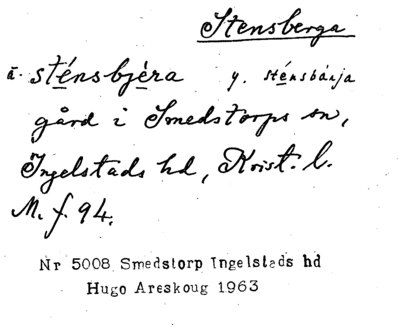 Stensberga
ä. sténsbjèra y. sténsbánja
gård i Smedstorps sn,
Ingelstads hd, Krist. l.
M. f. 94.
Nr 5008 Smedstorp Ingelstads hd
Hugo Areskoug 1963